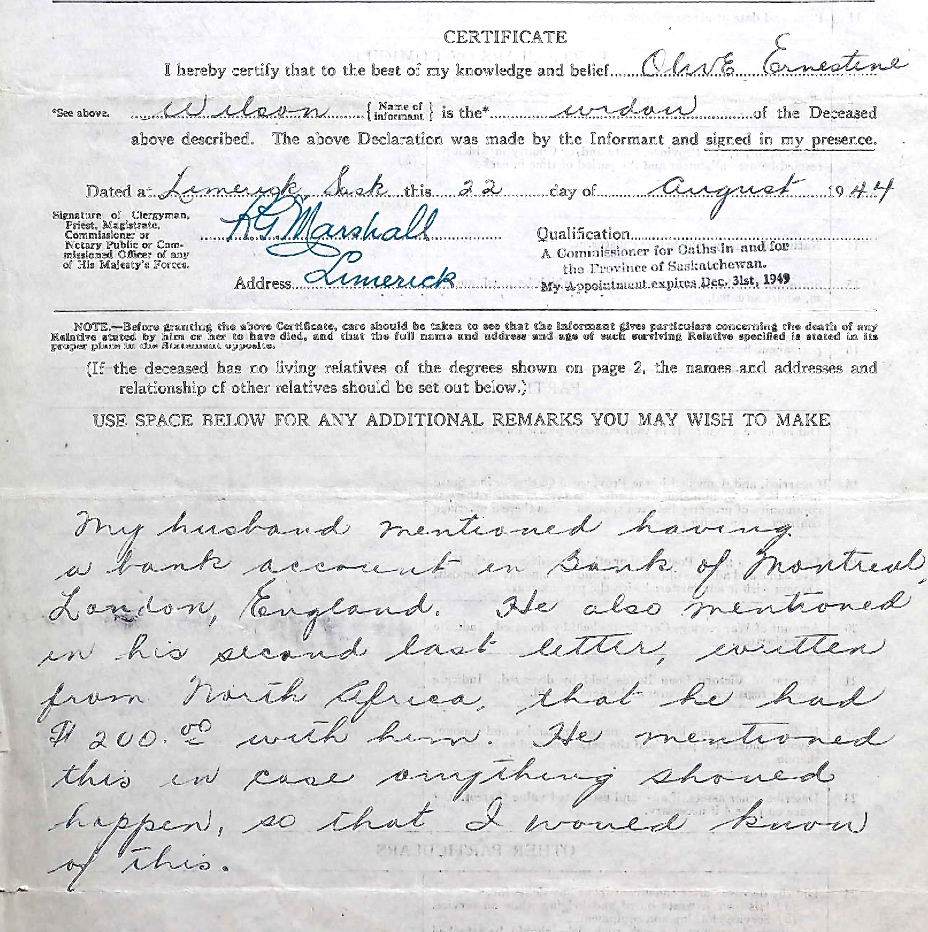 CERTIFICATE
I hereby certify that to the best of my knowledge and belief Olive Ernestine
*See above. Wilson {Name of informant} is the* widow of the Deceased
above described. The above Declaration was made by the Informant and signed in my presence.
Dated at Limerick Sask this 22 day of August 1944
Signature of Clergyman,
Priest, Magistrate,
Commissioner or
Notary Public or Com-
missioned Officer of any
of His Majesty's Forces.
Marshall
Qualification
A Commissioner for Oaths in and for
the Province of Saskatchewan.
My Appointment expires Dec. 31st, 1949
Address Limerick
NOTE.—Before granting the above Certificate, care should be taken to see that the informant gives particulars concerning the death of any
Relative stated by him or her to have died, and that the full name and address and age of each surviving Relative specified is stated in its
proper place in the Statement opposite.
(If the deceased has no living relatives of the degrees shown on page 2, the names and addresses and
relationship of other relatives should be set out below.)
USE SPACE BELOW FOR ANY ADDITIONAL REMARKS YOU MAY WISH TO MAKE
My husband mentioned having
a bank account in Bank of Montreal,
London, England. He also mentioned
in his second last letter, written
from North Africa, that he had
$200.00 with him. He mentioned
this in case anything should
happen, so that I would know
of this.